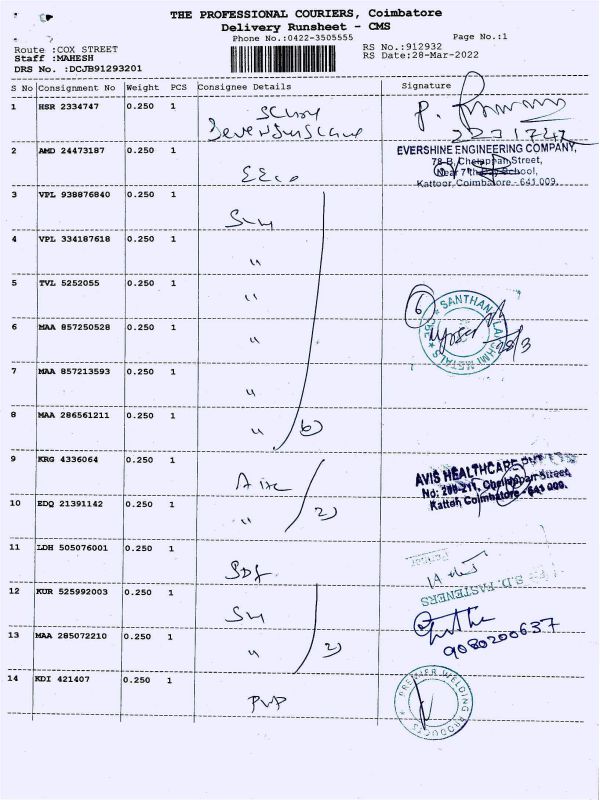 THE PROFESSIONAL COURIERS, Coimbatore
Delivery Runsheet - CMS
Phone No.:0422-3505555 Page No.:1
Route :COX STREET RS No.:912932
Staff :MAHESH RS Date:28-Mar-2022
DRS No. :DCJB91293201
S No Consignment No Weight PCS Consignee Details Signature
1 HSR 2334747 0.250 1
2 AMD 24473187 0.250 1
EVERSHINE ENGINEERING COMPANY,
78-B, Chelappan Street,
Near 7th School,
Kattoor, Coimbatore - 641 009.
3 VPL 938876840 0.250 1
4 VPL 334187618 0.250 1 "
5 TVL 5252055 0.250 1 "
6 MAA 857250528 0.250 1 "
6 SANTHANALAKSHMI METALS 28/3
7 MAA 857213593 0.250 1 "
8 MAA 286561211 0.250 1 " 6)
9 KRG 4336064 0.250 1
AVIS HEALTHCARE PVT
No: 209-211, Chelappan Street,
Kattoor, Coimbatore - 641 009.
10 EDQ 21391142 0.250 1 " 2)
11 LDH 505076001 0.250 1
S.D. FASTENERS
12 KUR 525992003 0.250 1
9080200637
13 MAA 285072210 0.250 1 " 2)
14 KDI 421407 0.250 1 PWP
PREMIER WELDING PRODUCTS